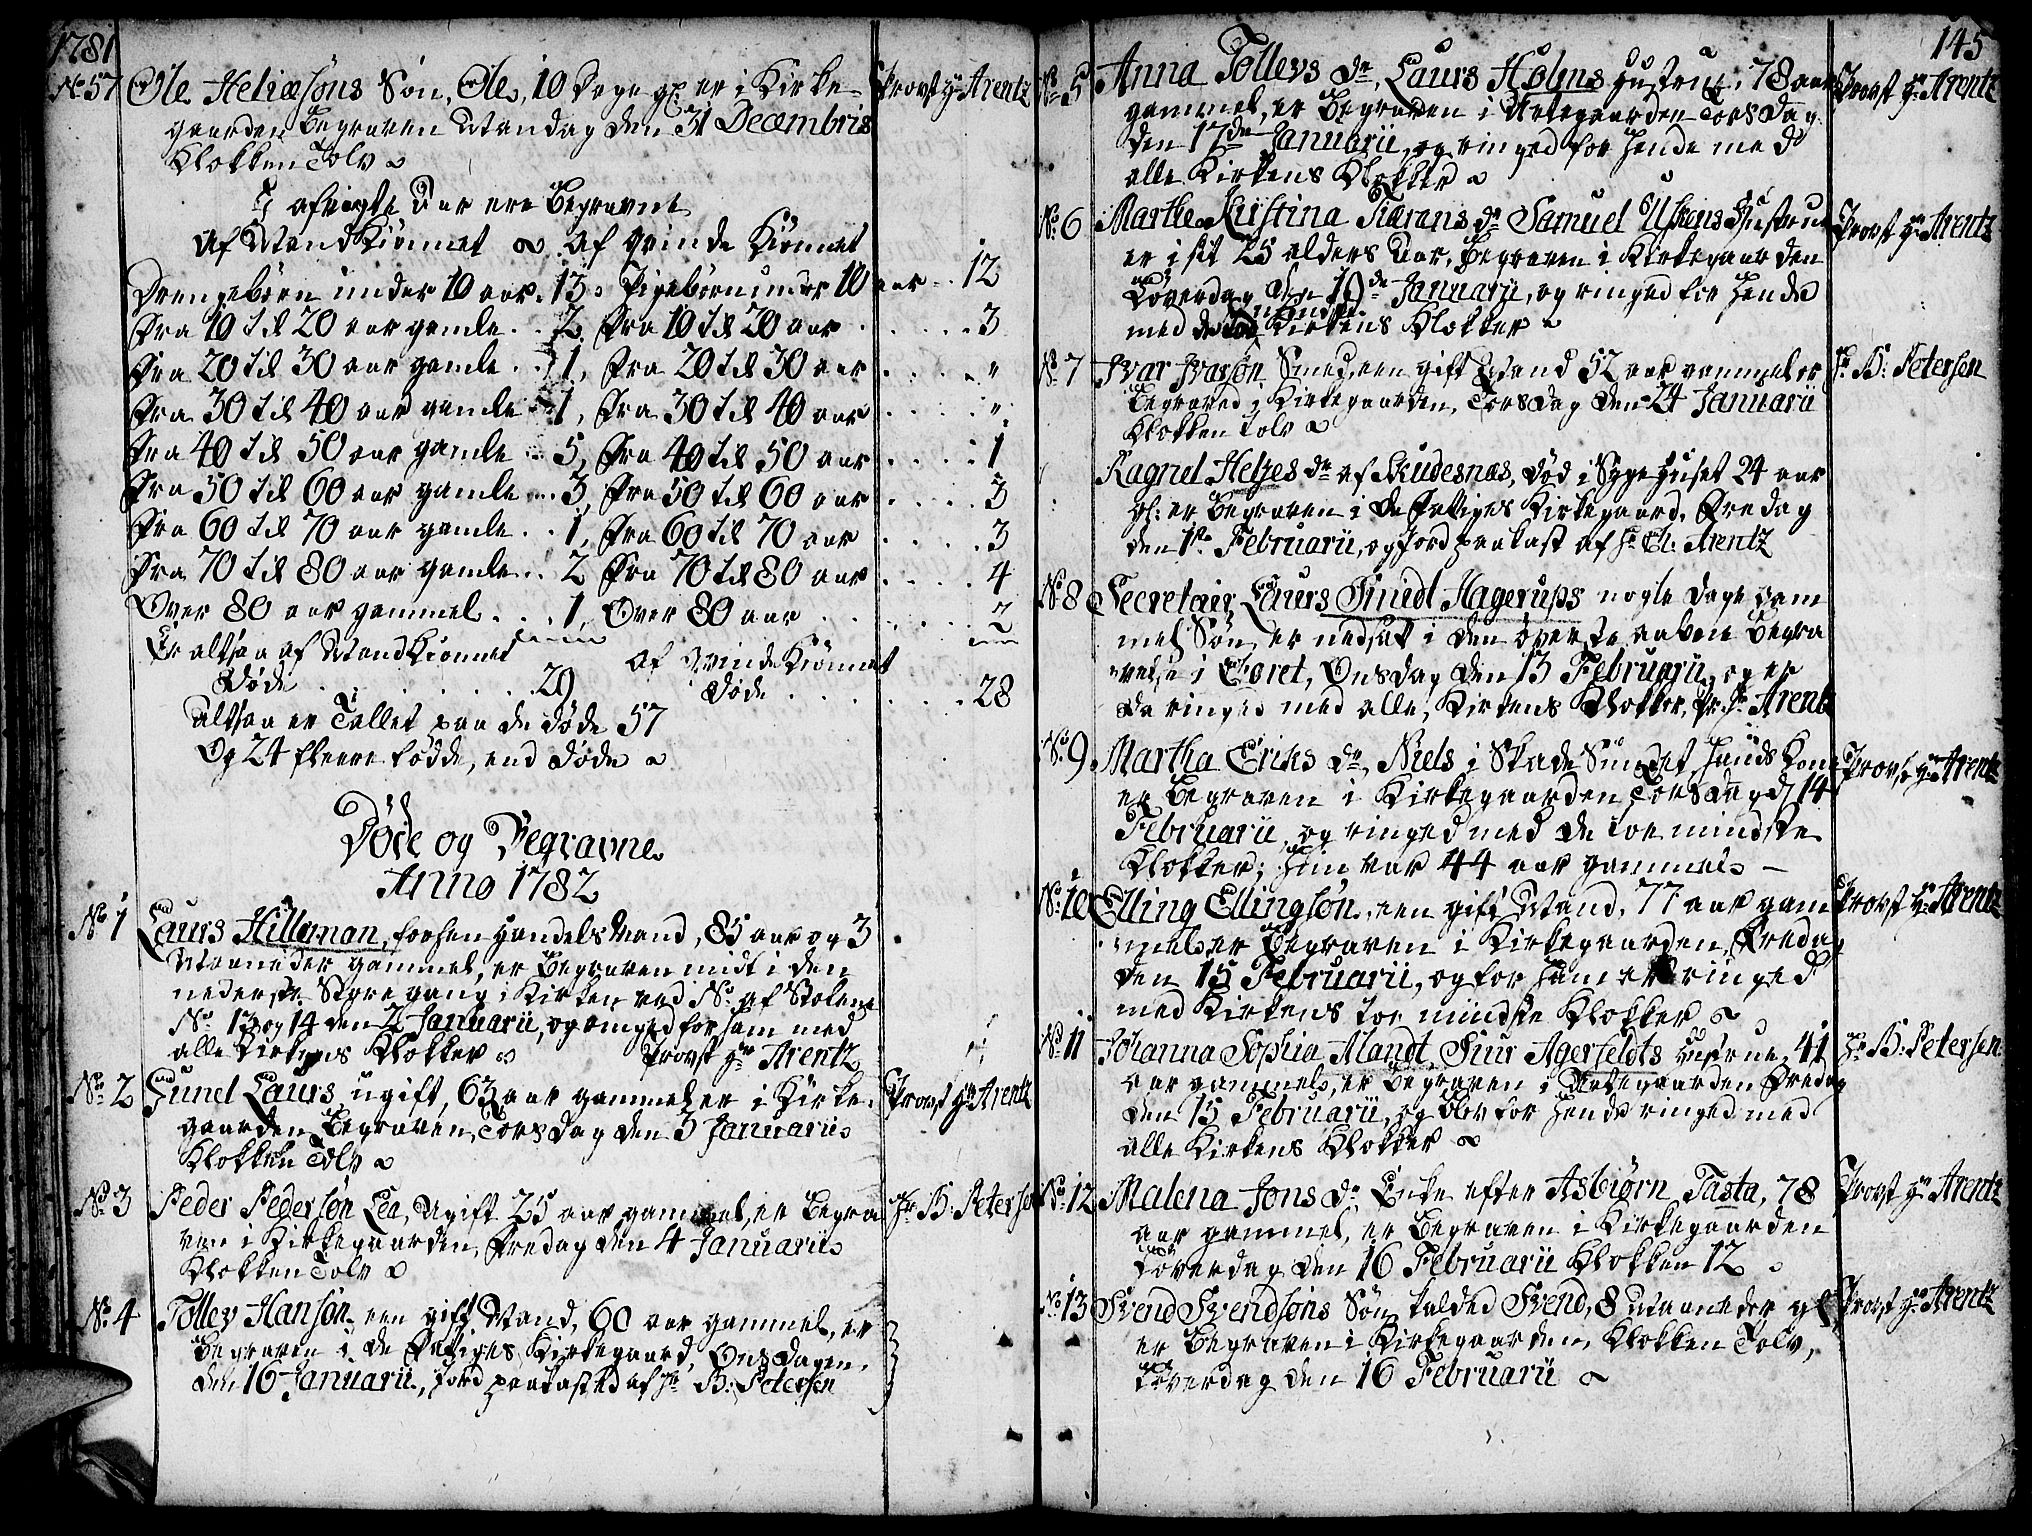 1781
No. 57 Ole Heliæsöns Sön, Ole, 10 Dage gl. er i Kirke- Provst Hr. Arentz
gaarden Begraven Mandag den 31 Decembris
Klokken Tolv
I afvigte Aar ere Begravne
Af Mandkiönnet af Qvinde Kiönnet
Drengebörn under 10 aar .. 13, Pigebörn under 10 aar .. 12
Fra 10 til 20 aar gamle .. 2, Fra 10 til 20 aar . . . . . 3
Fra 20 til 30 aar gamle .. 1, Fra 20 til 30 aar . . . . "
Fra 30 til 40 aar gamle .. 1, Fra 30 til 40 aar . . . . "
Fra 40 til 50 aar gamle .. 5, Fra 40 til 50 aar . . . . 1
Fra 50 til 60 aar gamle .. 3, Fra 50 til 60 aar . . . . 3
Fra 60 til 70 aar gamle .. 1, Fra 60 til 70 aar . . . . 3
Fra 70 til 80 aar gamle .. 2 Fra 70 til 80 aar . . . . 4
Over 80 aar gammel . . . 1, Over 80 aar . . . . . 2
Er altsaa af Mandkiönnet af Qvinde Kiönnet
Döde . . . . . . 29 Döde . . . . . . 28
altsaa er Tallet paa de döde 57
Og 24 fleere födde, end döde
Döde og Begravne
Anno 1782
No. 1 Laurs Hilleman, forhen Handels Mand, 85 aar og 3
Maaneder gammel, er Begraven midt i den
nederste gang i Kirken ved No. af Stolene
No. 13 og 14 den 2 Januarii, og ringed for ham med
alle Kirkens Klokker Provst Hr. Arentz
No. 2 Gunel Laurs, ugift, 63 aar gammel er i Kirke- Provst Hr. Arentz
gaarden Begraven, Torsdag den 3 Januarii
Klokken Tolv
No. 3 Peder Pedersön Lea, Ugift 25 aar gammel, er Begra Hr. B. Petersen
ven i Kirkegaarden, Fredag den 4 Januarii
Klokken Tolv
No. 4 Tollev Hansön, een gift Mand, 60 aar gammel, er
Begraven i de Fattiges Kirkegaard, Onsdagen,
den 16 Januarii, jord paakasted af Hr. B. Petersen
145
No. 5 Anna Tollevs dr. Laurs Holms Hustrue, 78 aar Provst Hr. Arentz
gammel, er Begraven i Urtegaarden Torsdag
den 17de Januarii, og ringed for hende med
alle Kirkens Klokker
No. 6 Marthe Kirstina Tiærans dr. Samuel Uskens Hustrue Provst Hr. Arentz
er i sit 25 alders Aar, Begraven i Kirkegaarden
Löverdag den 19de Januarii, og ringed for hende
mindste
med de toe Kirkens Klokker
No. 7 Ivar Ivarsön, Smed, een gift Mand 52 aar gammel er Hr. B. Petersen
Begraved i Kirkegaarden, Torsdag den 24 Januarii
Klokken tolv
Ragnel Helges dr. af Skudesnæs, död i Syge Huset 24 aar
gl. er Begraven i De Fattiges Kirkegaard, Fredag
den 1te Februarii, og Jord paakast af Hr. Arentz
No. 8 Secretair Laurs Smidt Hagerups nogle Dage gam
mel Sön, er nedsat i den överste aabne Begra
velse i Choret, Onsdag den 13 Februarii, og er
da ringed med alle Kirkens Klokker, Pr. Hr. Arentz
No. 9 Martha Eriks dr. Niels i Skadesundet Hands Kone Provst Hr. Arentz
er Begraven i Kirkegaarden Torsdag d. 14
Februarii, og ringed med de toe mindste
Klokker; hun var 44 aar gammel
No. 10 Elling Ellingsön, een gift Mand, 77 aar gam Provst Hr. Arentz
mel er Begraven i Kirkegaarden, Fredag
den 15 Februarii, og for ham er ringed
med Kirkens toe mindste Klokker
No. 11 Johanna Sophia Alandt, Siur Agerfeldts Hustrue, 41 Hr. B. Petersen
aar gammel, er Begraven i Urtegaarden Fredag
den 15 Februarii, og blev for hende ringed med
alle Kirkens Klokker
No. 12 Malena Jons dr. Enke efter Asbiörn Tasta, 78 Provst Hr. Arentz
aar gammel, er Begraven i Kirkegaarden
Löverdag den 16 Februarii Klokken 12
No. 13 Svend Svendsöns Sön kalded Svend, 8 Maaneder gl. Provst Hr. Arentz
er Begraven i Kirkegaarden, Klokken Tolv,
Löverdag den 16 Februarii